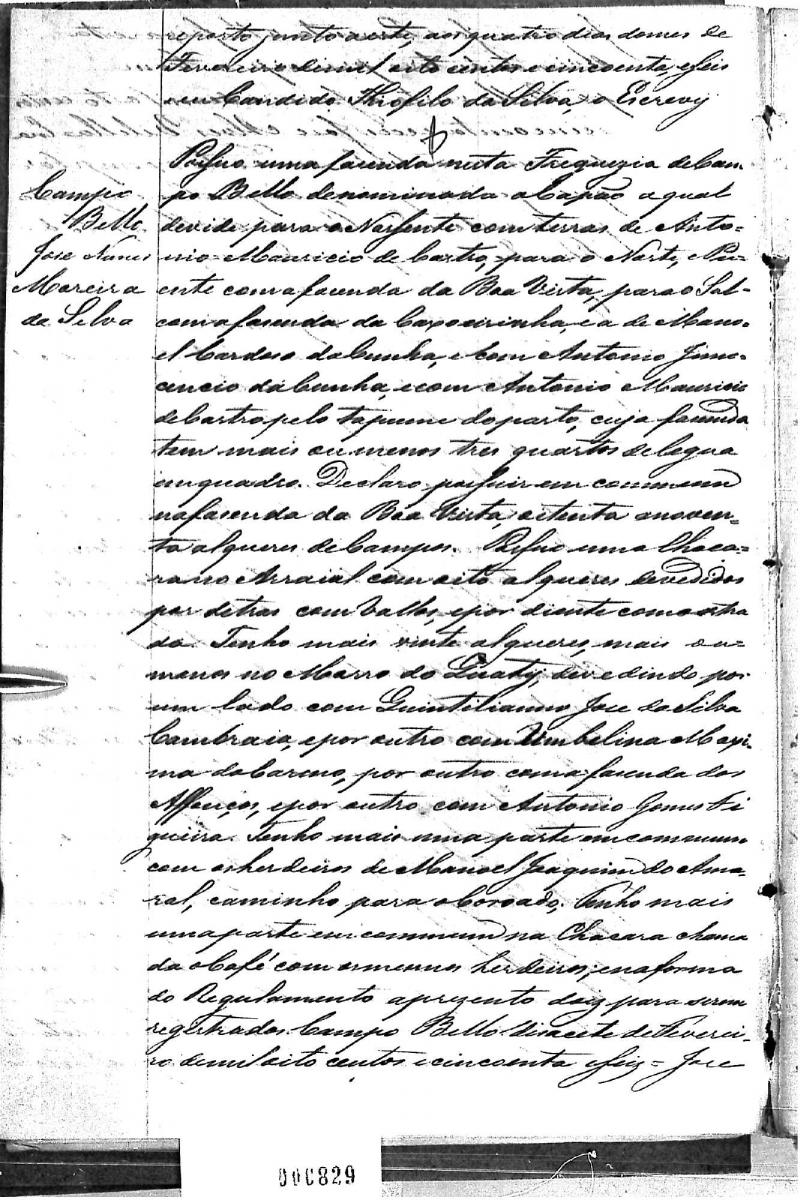 reporto junto a este, aos quatro dias do mes de
Fevereiro de mil oito centos e cincoenta, e seis
eu Candido Theofilo da Silva, o Escrevy
Campo
Bello
José Nunes
Moreira
da Silva
Possuo uma fazenda nesta Freguezia de Cam-
po Bello denominada o Capão a qual
devide para o Narsente com terras de Anto-
nio Mauricio de Castro, para o Norte, e Pu-
ente com a fazenda da Boa Vista, para o Sul-
com a fasenda da Capoeirinha, e a de Mano-
el Cardoso da Cunha, e com Antonio Inno-
cencio da Cunha, e com Antonio Mauricio
de Castro pelo tapume do parto, cuja fazenda
tem mais ou menos tres quartos de legua
em quadro. Declaro possuir em commum
na fasenda da Boa Vista, oitenta a noven-
ta alqueres de Campos. Possuo uma Chaca-
ra no Arraial com oito alqueres devedidos
por detras com Vallos, e por diante com estra
da. Tenho mais vinte alqueres, mais ou
menos no Morro do devedindo por
um lado com Quintilianno José da Silva
Cambraia, e por outro com Umbelina Maxi-
ma do Carmo, por outro com a fazenda dos
e por outro com Antonio Gomes Fi
gueira. Tenho mais uma parte em commum
com os herdeiros de Manoel Joaquim do Ama-
ral, caminho para o Coroado. Tenho mais
uma parte em commum na Chacara chama
da o Café com os mesmos herdeiros, e na forma
do Regulamento aprezento doiz para serem
regestrados. Campo Bello disacete de Feverei-
ro de mil oito centos e cincoenta e seiz = José
000829